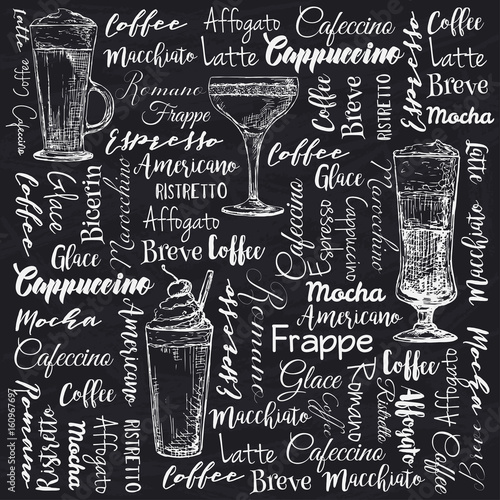 Latte
Coffee
Cafeccino
Coffee
Macchiato
Affogato
Latte
Cafeccino
Cappuccino
Coffee
Latte
Breve
Mocha
Espresso
Romano
Frappe
Espresso
Coffee
Breve
Ristretto
Americano
RISTRETTO
Affogato
Breve Coffee
Coffee
Glace
Bicerin
Marocchino
Glace
Coffee
Glace
Cafeccino
Espresso
Cappuccino
Marocchino
Latte
Macchiato
Cappuccino
Mocha
Cafeccino
Coffee
Americano
RISTRETTO
Romano
Ristretto
Mocha
Affogato
Coffee
Espresso
Romano
Mocha
Americano
Frappe
Coffee
Glace
Coffee
Romano
Ristretto
Affogato
Mocha
Breve
Macchiato
Latte
Cappuccino
Coffee Breve Macchiato
Coffee